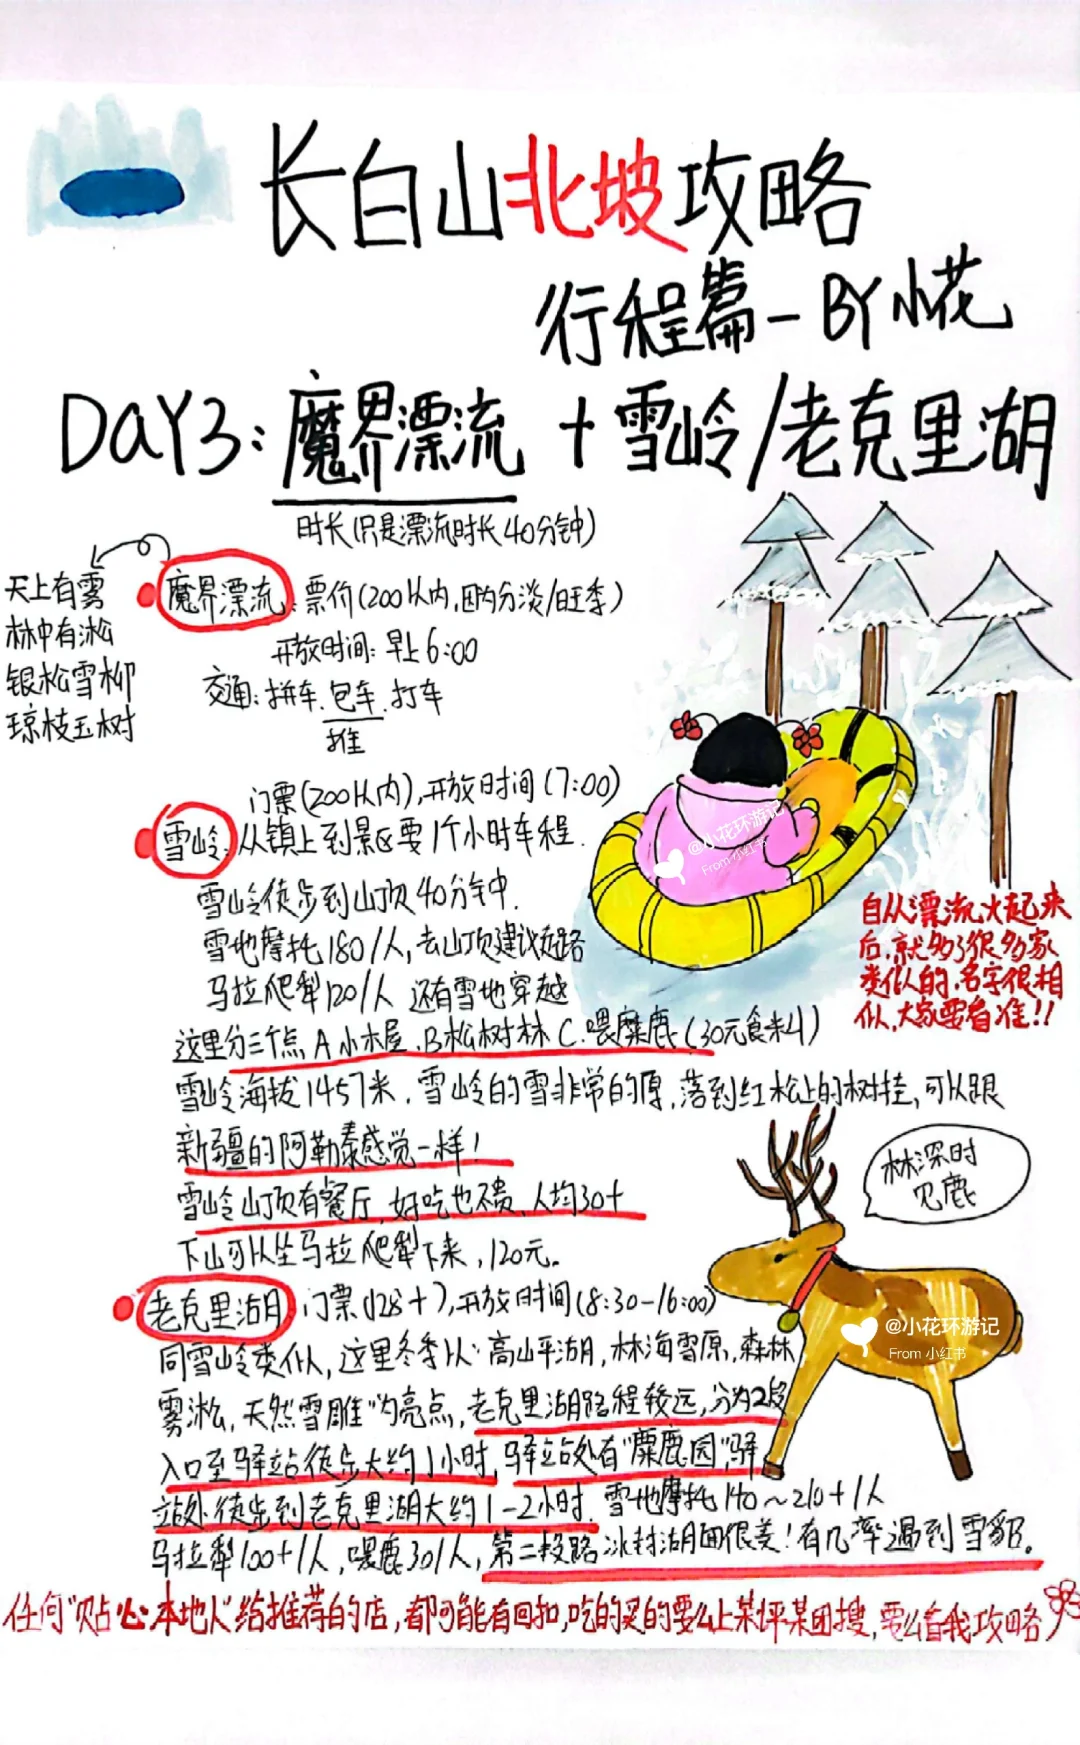 长白山北坡攻略
行程篇-BY小花
DaY3:魔界漂流+雪岭/老克里湖
时长(只是漂流时长40分钟)
天上有雾
林中有淞
银松雪柳
琼枝玉树
魔界漂流:票价(200以内,因内分淡/旺季)
开放时间:早上6:00
交通:拼车、包车、打车
推
门票(200以内),开放时间(7:00)
雪岭:从镇上到景区要1个小时车程.
雪岭徒步到山顶40分钟.
雪地摩托180/人,去山顶建议
马拉爬犁120/人 还有雪地穿越
这里分三个点A小木屋、B松树林C.喂麋鹿(30元食料)
雪岭海拔1457米.雪岭的雪非常的厚,落到红松上的树挂,可以跟
新疆的阿勒泰感觉一样!
雪岭山顶有餐厅,好吃也不贵、人均30+
下山可以坐马拉爬犁下来,120元。
自从漂流火起来
后,就多了很多家
类似的.名字很相
似,大家要看准!!
林深时
见鹿
老克里湖 门票(128+),开放时间(8:30-16:00)
同雪岭类似,这里冬季以"高山平湖,林海雪原,森林
雾淞,天然雪雕"为亮点,老克里湖路程较远,分为2段
入口至驿站徒步大约1小时,驿站处有"麋鹿园",驿
站处徒步到老克里湖大约1-2小时.雪地摩托140~210+/人
马拉犁100+/人,喂鹿30/人,第二段路冰封湖面很美!有几率遇到雪貂。
任何"贴心本地人"给推荐的店,都可能有回扣,吃的买的要么上某评某团搜,要么看我攻略
@小花环游记
From 小红书
@小花环游记
From 小红书